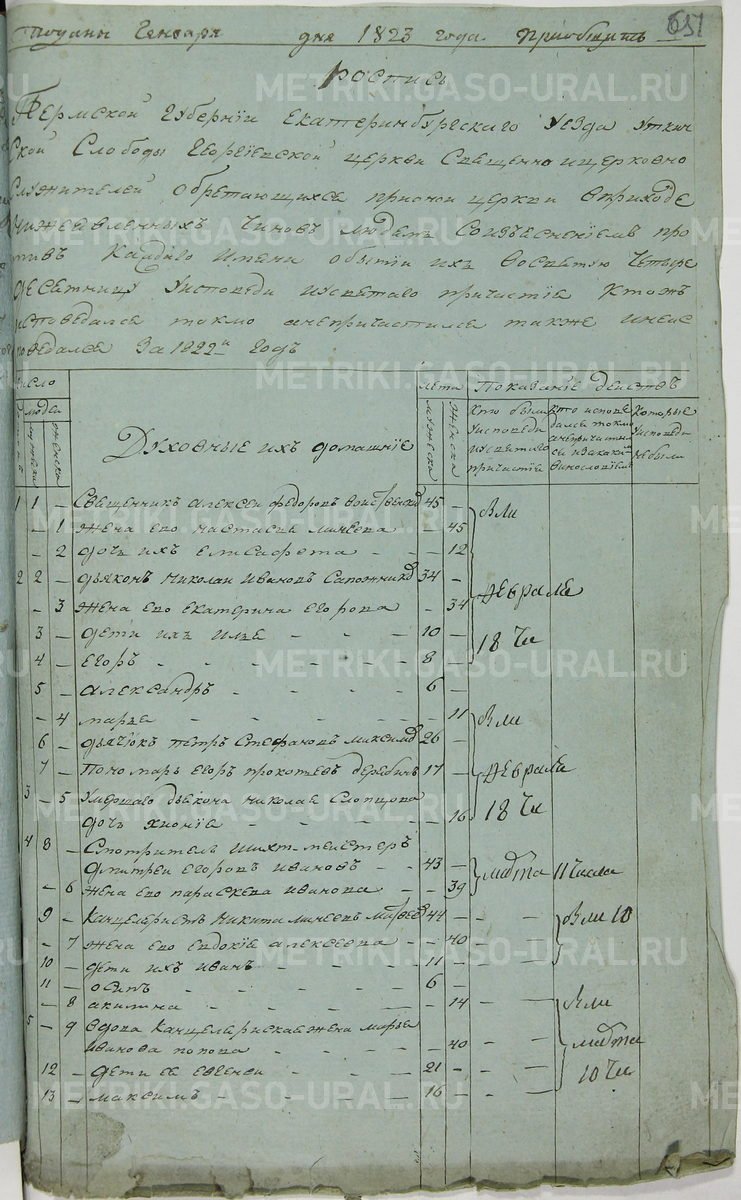 Подины Генваря дня 1823 года Приобщить 651
роспись
Пермской Губернiи Екатеринбургскаго Уезда Уткин
ской Слободы Георгiевской церкви Священно ицерковно
служителей Обретающихся прионой церкви вприходе
нижеявленныхъ Чиновъ людехъ Соизъяснениемъ про
тивъ Каждаго Имени обытiи ихъ Восвятую Четыре
десятницу Уисповеди исвятаго причастiя Ктожъ
исповедался токмо анепричастился также инеис
поведался За 1822й Годъ
Число лета Показанiе действъ
людей
мужска женска Духовные ихъ домашнiе мужеска женска Кто были Уисповеди исвятаго причастiя Кто исповедался токмо анепричастился изакакимъ винословiемъ Которые Уисповеди небыли
1 1 – Священникъ Алексей Федоровъ 45 – Вли
– 1 Жена его настасья минеева – 45
– 2 дочь ихъ елисафета – 12
2 2 – дьяконъ Николай Ивановъ Сапожниковъ 34 –
– 3 Жена его Екатерина Егорова – 34 Февраля
3 – дети ихъ Илья 10 – 18 Чи
4 – Егоръ 8 –
5 – Александръ 6 –
– 4 марья – 11 Вли
6 – дьячокъ петръ Стефановъ 26 –
7 – Пономарь Егоръ прокопьевъ 17 – Февраля
3 – 5 Умершаго дьякона николая Слопцова
дочь Хионiя – 16 18 Чи
4 8 – Смотритель Шихт-мейстеръ
Дмитрей Егоровъ Ивановъ 43 – марта 11 Числа
– 6 Жена его параскева Иванова – 39
9 – Канцеляристъ Никита минеевъ 44 – Вли 10
– 7 Жена его евдокiя алексеева – 40
10 – дети ихъ Иванъ 11 –
11 – осипъ 6 –
– 8 акилина – 14 Вли
5 – 9 Вдова Канцелярискаяжена марья
Иванова попова – 40 марта
12 – дети ея Евгенiй 21 – 10 Чи
13 – максимъ 16 –
METRIKI.GASO-URAL.RU